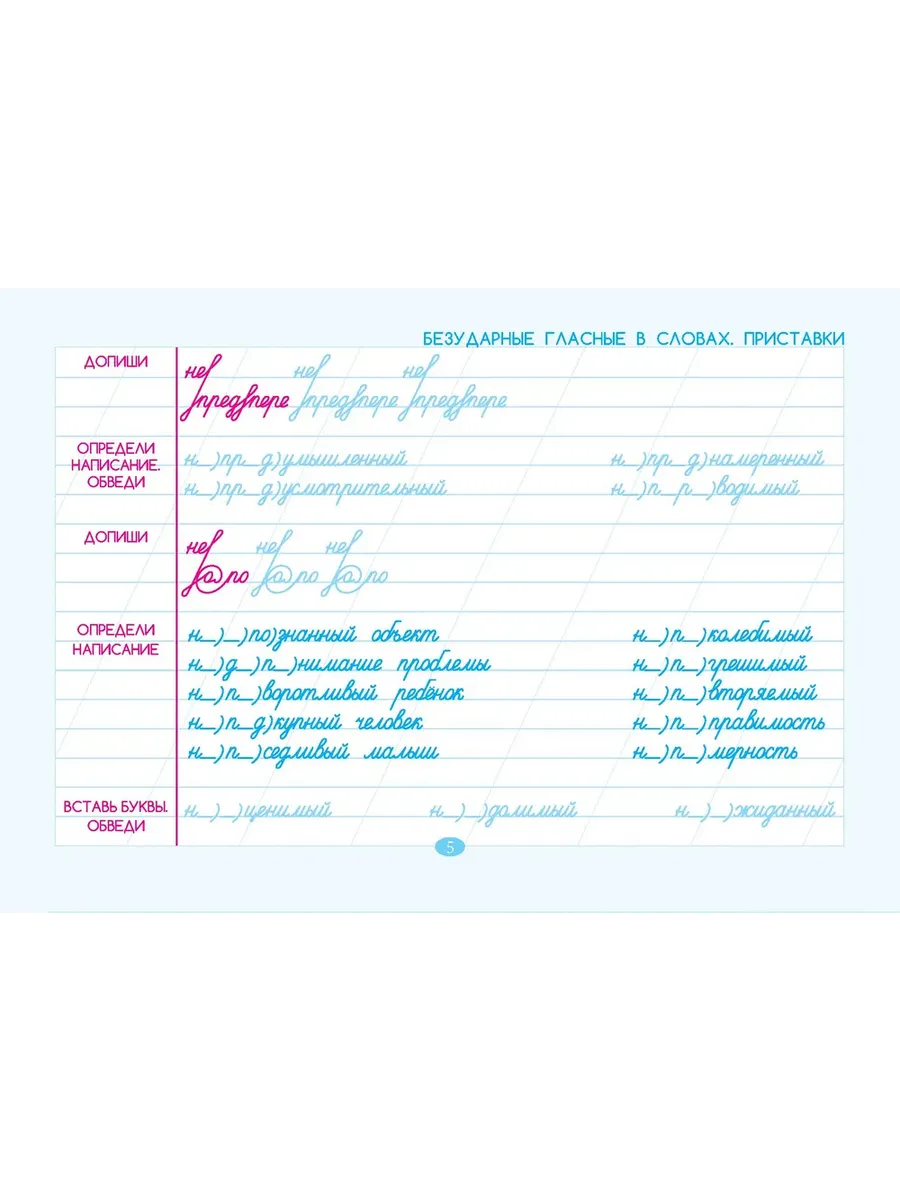 БЕЗУДАРНЫЕ ГЛАСНЫЕ В СЛОВАХ. ПРИСТАВКИ
ДОПИШИ
не не не
пред пере пред пере пред пере
ОПРЕДЕЛИ НАПИСАНИЕ. ОБВЕДИ
н_)пр_д)умышленный н_)пр_д)намеренный
н_)пр_д)усмотрительный н_)п_р_)водимый
ДОПИШИ
не не не
о по о по о по
ОПРЕДЕЛИ НАПИСАНИЕ
н_)_)по)знанный объект н_)п_)колебимый
н_)д_)п_)нимание проблемы н_)п_)грешимый
н_)п_)воротливый ребёнок н_)п_)вторяемый
н_)п_д)купный человек н_)п_)правимость
н_)п_)седливый малыш н_)п_)мерность
ВСТАВЬ БУКВЫ. ОБВЕДИ
н_)_)ценимый н_)_)долимый н_)_)жиданный
5